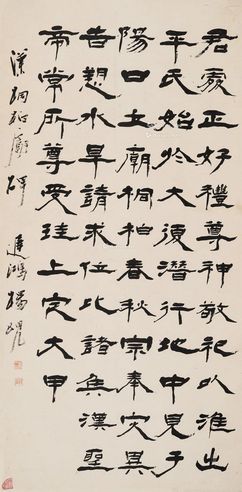 君處正好禮尊神敬祀以淮出
平氏始於大復潛行地中見于
陽口立廟桐柏春秋宗奉災異
告愬水旱請求位比諸侯漢聖
帝常所尊受珪上定大甲
漢桐柏廟碑 楊峴